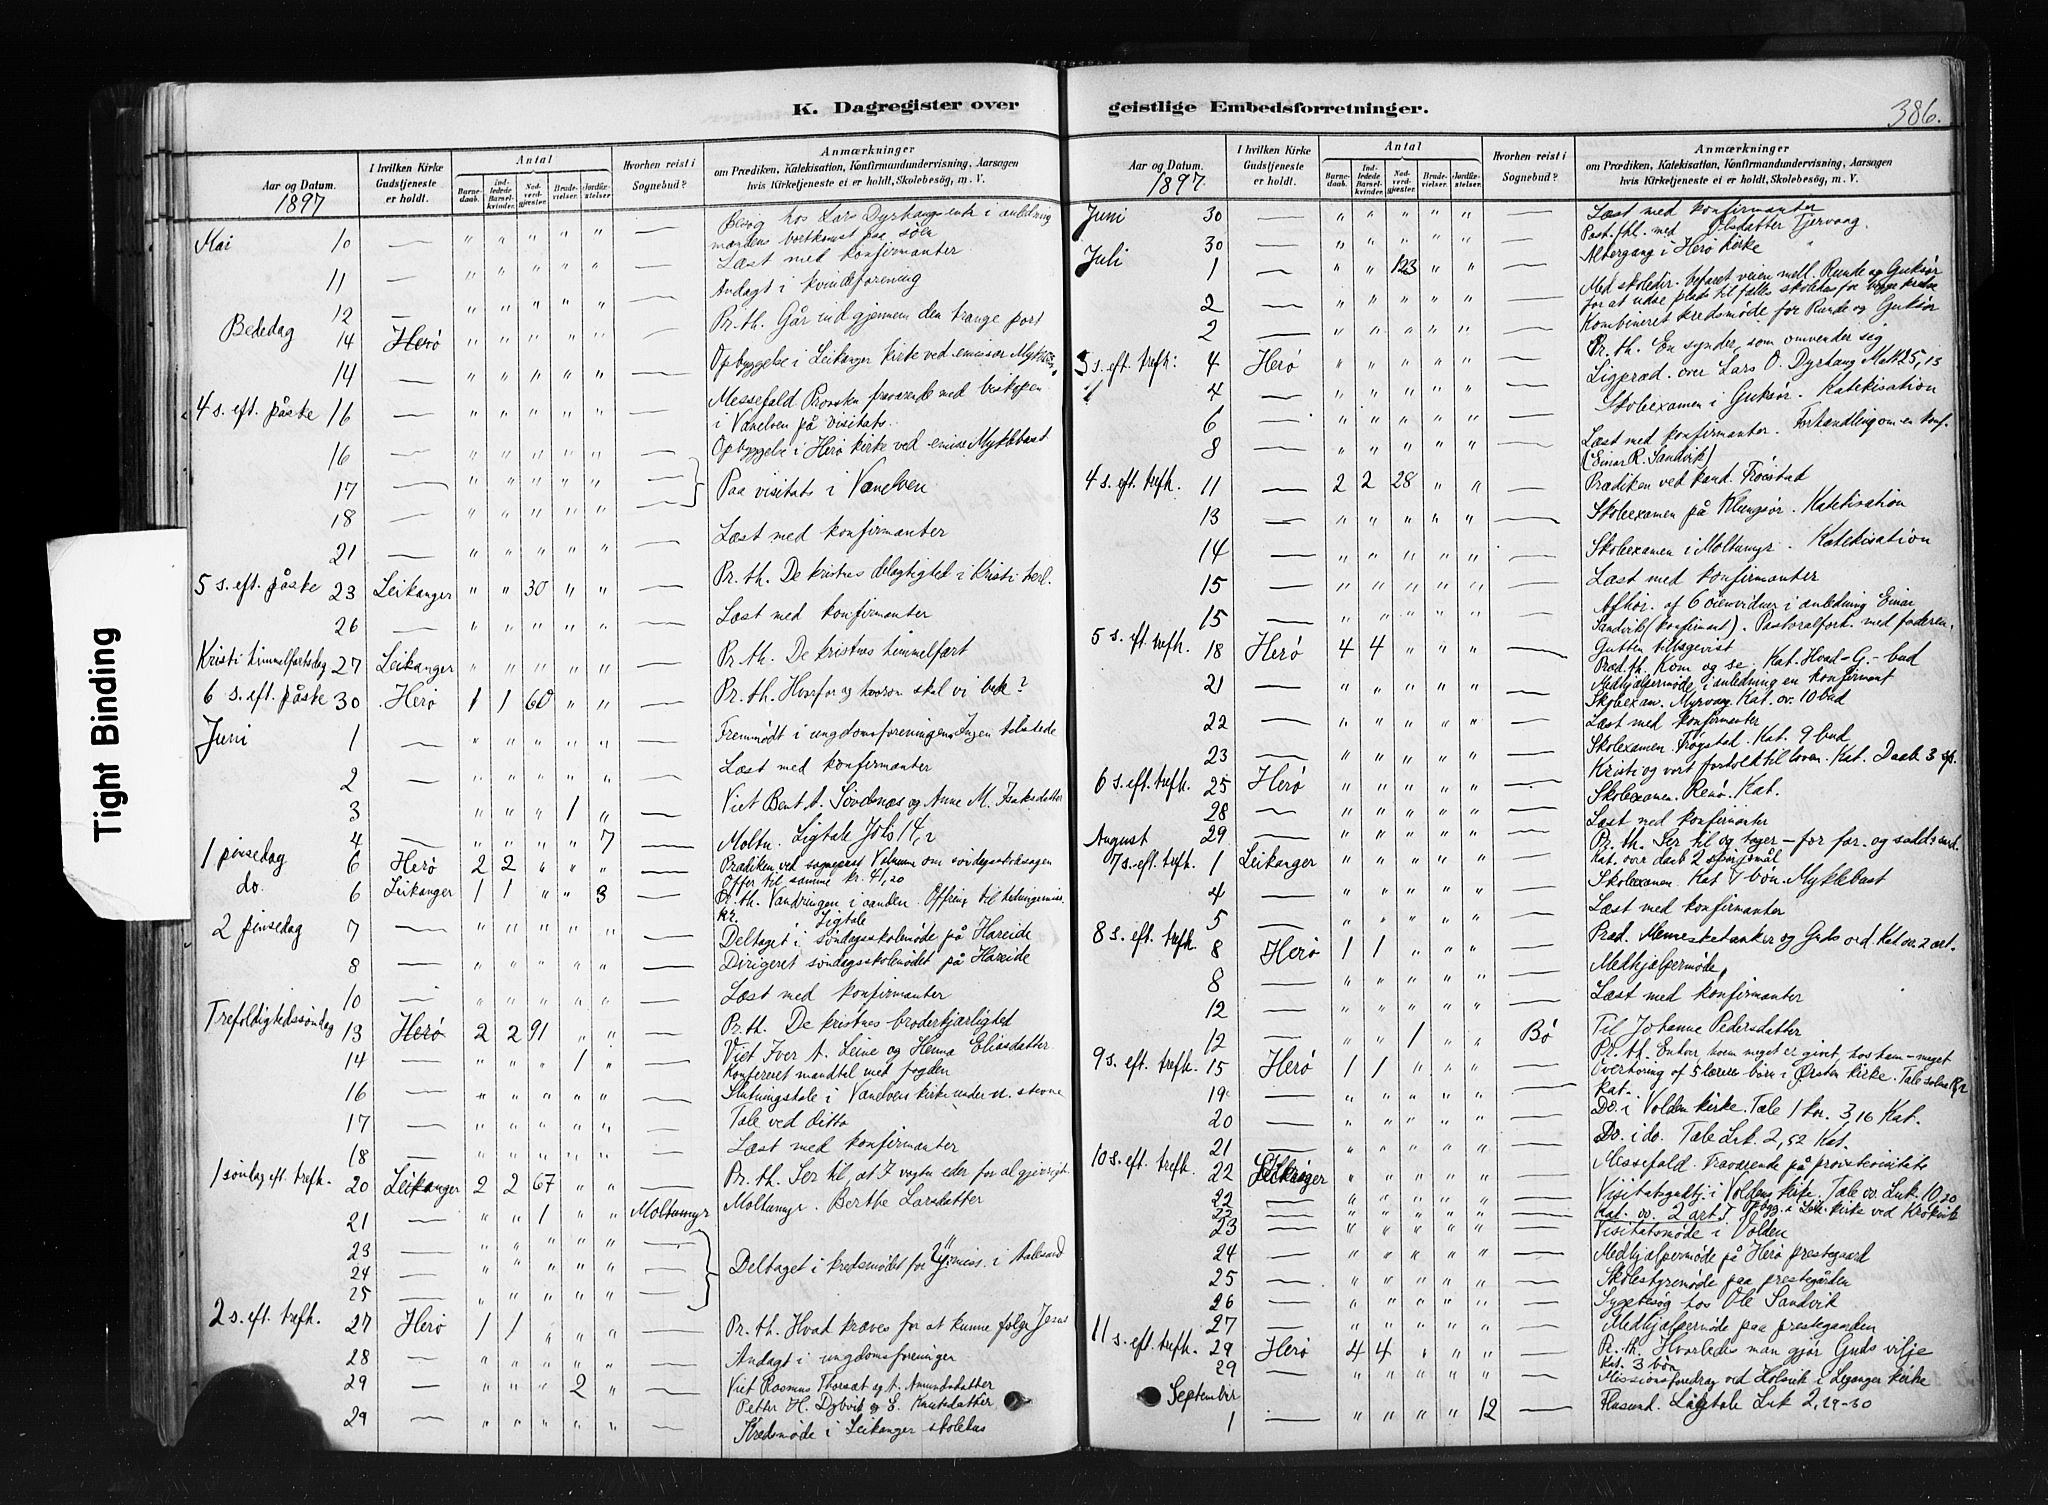 K. Dagregister over
Aar og Datum.
1897
I hvilken Kirke Gudstjeneste er holdt.
Antal
Barne-daab.
Ind-ledede Barsel-kvinder.
Nad-verd-gjæster.
Brude-vielser.
Jordfæ-stelser
Hvorhen reist i Sognebud?
Anmærkninger
om Prædiken, Katekisation, Konfirmandundervisning, Aarsagen
hvis Kirketjeneste ei er holdt, Skolebesøg, m. V.
Mai 10 — " " " " " — Besøg hos Lars Dyrhaugs enke i anledning
mandens bortkomst paa søen
11 — " " " " " — Læst med konfirmanter
12 — " " " " " — Andagt i kvindeforening
Bededag 14 Herø " " " " " — Pr. th. Går ind gjennem den trange port
14 — " " " " " — Opbyggelse i Leikanger kirke ved emissær
4 s. eft. påske 16 — " " " " " — Messefald Provsten fraværende med bispen
i Vanelven på visitats.
16 — " " " " " — Opbyggelse i Herø kirke ved emiss Myklebust
17 — " " " " " — Paa visitats i Vanelven
18 — " " " " " —
21 — " " " " " — Læst med konfirmanter
5 s. eft. påske 23 Leikanger " " 30 " " — Pr. th. De kristnes delagtighed i Kristi herl.
26 — " " " " " — Læst med konfirmanter
Kristi himmelfartsdag 27 Leikanger " " " " " — Pr. th. De kristnes himmelfart
6 s. eft. påske 30 Herø 1 1 60 " " — Pr. th. Hvorfor og hvoron skal vi bede?
Juni 1 — " " " " " — Fremmødt i ungdomsforeningen. Ingen tilstede
2 — " " " " " — Læst med konfirmanter
3 " " " 1 " — Viet Bent A. Sævdsnes og Anne M. Isaksdatter
4 — " " " " 7 — Moltu. Ligtale Joh 14,2
1 pinsedag 6 Herø 2 2 " " " — Prædiken ved sogneprest om søndagsskolesagen
Offer til samme kr. 41,20
do. 6 Leikanger 1 1 " " 3 — Pr. th. Vandringen i aanden. Offring til hedningemiss.
kr. Ligtale
2 pinsedag 7 — " " " " " — Deltaget i søndagsskolemøde på Hareide
8 — " " " " " — Dirigeret søndagsskolemødet på Hareide
10 — " " " " " — Læst med konfirmanter
Trefoldighedssøndag 13 Herø 2 2 91 " " — Pr. th. De kristnes broderkjærlighed
14 — " " " 1 " — Viet Iver A. Leine og Hanna Eliasdatter
Konfereret mandtal med fogden
16 — " " " " " — Slutningstale i Vanelvens kirke under u. stevne
17 — " " " " " — Tale ved ditto
18 — " " " " " — Læst med konfirmanter
1 søndag eft. trefh. 20 Leikanger 2 2 67 " " — Pr. th. Ser til, at I vogter eder for al gjerrigh.
21 — " " 1 " " Moltumyr Moltumyr. Berthe Larsdatter
23 — " " " " " —
24 — " " " " " — Deltaget i kredsmødet for miss. i Aalesund
25 — " " " " " —
2 s. eft. trefh. 27 Herø 1 1 " " " — Pr. th. Hvad kræves for at kunne følge Jesus
28 — " " " " " — Andagt i ungdomsforeninger
29 — " " " 2 " — Viet Rasmus Thorsæt og A. Amundsdatter
Petter H. Dybvik og S. Knutsdatter
29 — " " " " " — Kredsmøde i Leikanger skolehus
geistlige Embedsforretninger.
386.
Aar og Datum.
1897.
I hvilken Kirke Gudstjeneste er holdt.
Antal
Barne-daab.
Ind-ledede Barsel-kvinder.
Nad-verd-gjæster.
Brude-vielser.
Jordfæ-stelser.
Hvorhen reist i Sognebud?
Anmærkninger
om Prædiken, Katekisation, Konfirmandundervisning, Aarsagen
hvis Kirketjeneste ei er holdt, Skolebesøg, m. V.
Juni 30 — " " " " " — Læst med konfirmanter
30 — " " " " " — Past. fhl. med Olsdatter Tjervaag.
Juli 1 — " " 123 " " — Altergang i Herø kirke
2 — " " " " " — Med skoledir. befaret veien mell. Runde og Guksør
for at udse plads til fælles skolehus for begge kredse
2 — " " " " " — Kombineret kredsmøde for Runde og Guksør
3 s. eft. trefh. 4 Herø " " " " " — Pr. th. En synder, som omvender sig
4 — " " " " " — Ligpræd. over Lars O. Dyrhaug Matt 25,13
6 — " " " " " — Skoleexamen i Guksør. Katekisation
8 — " " " " " — Læst med konfirmanter. Forhandling om en konf.
(Einar R. Sandvik)
4 s. eft. trefh. 11 — 2 2 28 " " — Prædiken ved kand. Frøistad
13 — " " " " " — Skoleexamen på Kleungsør. Katekisation
14 — " " " " " — Skoleexamen i Moltumyr. Katekisation
15 — " " " " " — Læst med konfirmanter
15 — " " " " " — Afhør. af 6 øienvidner i anledning Einar
Sandvik (konfirmant). Pastoralfort. med faderen.
Gutten
5 s. eft. trefh. 18 Herø 4 4 " " " — Præd. th. Kom og se. Kat. Hvad-G.-bud
Medhjælpermøde i anledning en konfirmant
21 — " " " " " — Skoleexam. Myrvaag. Kat. ov. 10 bud
22 — " " " " " — Læst med konfirmanter
23 — " " " " " — Skoleexamen. Frøystad. Kat. 9 bud
6 s. eft. trefh. 25 Herø " " " " " — Kristi og vort forhold til loven. Kat. Daab 3 sp.
28 — " " " " " — Skoleexamen. Renø. Kat.
29 — " " " " " — Læst med konfirmanter
August
7 s. eft. trefh. 1 Leikanger " " " " " — Pr. th. Ser til og tager — for far. og sadd. surd.
Kat. over daab 2 spørsmål
4 — " " " " " — Skoleexamen. Kat 7 bøn. Myklebust
5 — " " " " " — Læst med konfirmanter
8 s. eft. trefh. 8 Herø 1 1 " " " — Præd. Mennesketanker og Guds ord. Kat ov. 2 art.
8 — " " " " " — Medhjælpermøde,
12 — " " " " " — Læst med konfirmanter
12 — " " 1 " " Bø Til Johanne Pedersdatter
9 s. eft. trefh. 15 Herø 1 1 " " " — Pr. th. Enhver, hvem meget er givet, hos ham — meget
19 — " " " " " — Overhøring af 5 læreres børn i Ørsten kirke. Tale
Kat.
20 — " " " " " — Do. i Volden kirke. Tale 1 kor. 3,16 Kat.
21 — " " " " " — Do. i do. Tale Luk. 2,52 Kat.
10 s. eft. trefh. 22 Leikanger " " " " " — Messefald. Fraværende på provstevisitats
22 — " " " " " — Visitatsgudtj. i Voldens kirke. Tale ov. Luk. 10,20
22 — " " " " " — Kat. ov. 2 art. Opbygg. i Leik. kirke ved Krokvik
23 — " " " " " — Visitatsmøde i Volden
24 — " " " " " — Medhjælpermøde på Herø prestegaard
25 — " " " " " — Skolestyremøde paa prestegården
26 — " " " " " — Sygebesøg hos Ole Sandvik
27 — " " " " " — Medhjælpermøde paa prestegaarden
11 s. eft. trefh. 29 Herø 4 4 " " " — Pr. th. Hvorledes man gjør Guds vilje
Kat. 3 bøn
29 — " " " " " — Missionsforedrag ved Holsvik i Leganger kirke
September
1 — " " " " 12 — Flusund. Ligtale Luk 2, 29-30
Tight Binding